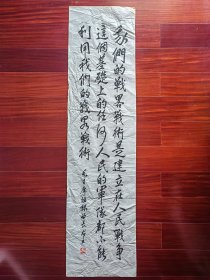 我們的戰畧戰術是建立在人民戰争
這個基礎上的任何人民的軍隊都不能
利用我們的戰畧戰術